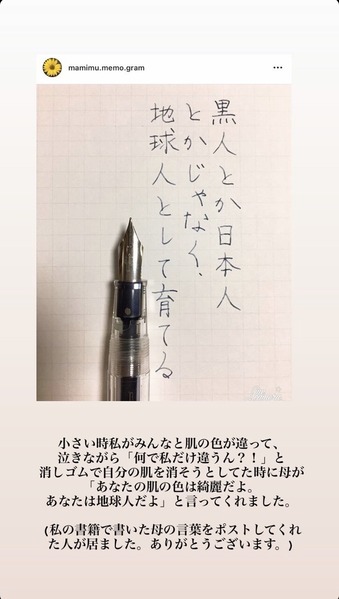 mamimu.memo.gram
黒人とか日本人
とかじゃなく、
地球人として育てる
小さい時私がみんなと肌の色が違って、
泣きながら「何で私だけ違うん？！」と
消しゴムで自分の肌を消そうとしてた時に母が
「あなたの肌の色は綺麗だよ。
あなたは地球人だよ」と言ってくれました。
(私の書籍で書いた母の言葉をポストしてくれ
た人が居ました。ありがとうございます。)